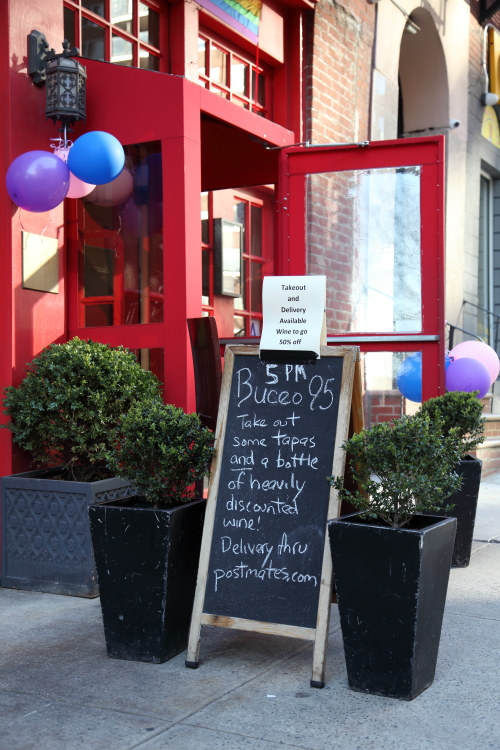 Takeout
and
Delivery
Available
Wine to go
50% off
5 PM
Buceo 95
Take out
some tapas
and a bottle
of heavily
discounted
wine!
Delivery thru
postmates.com